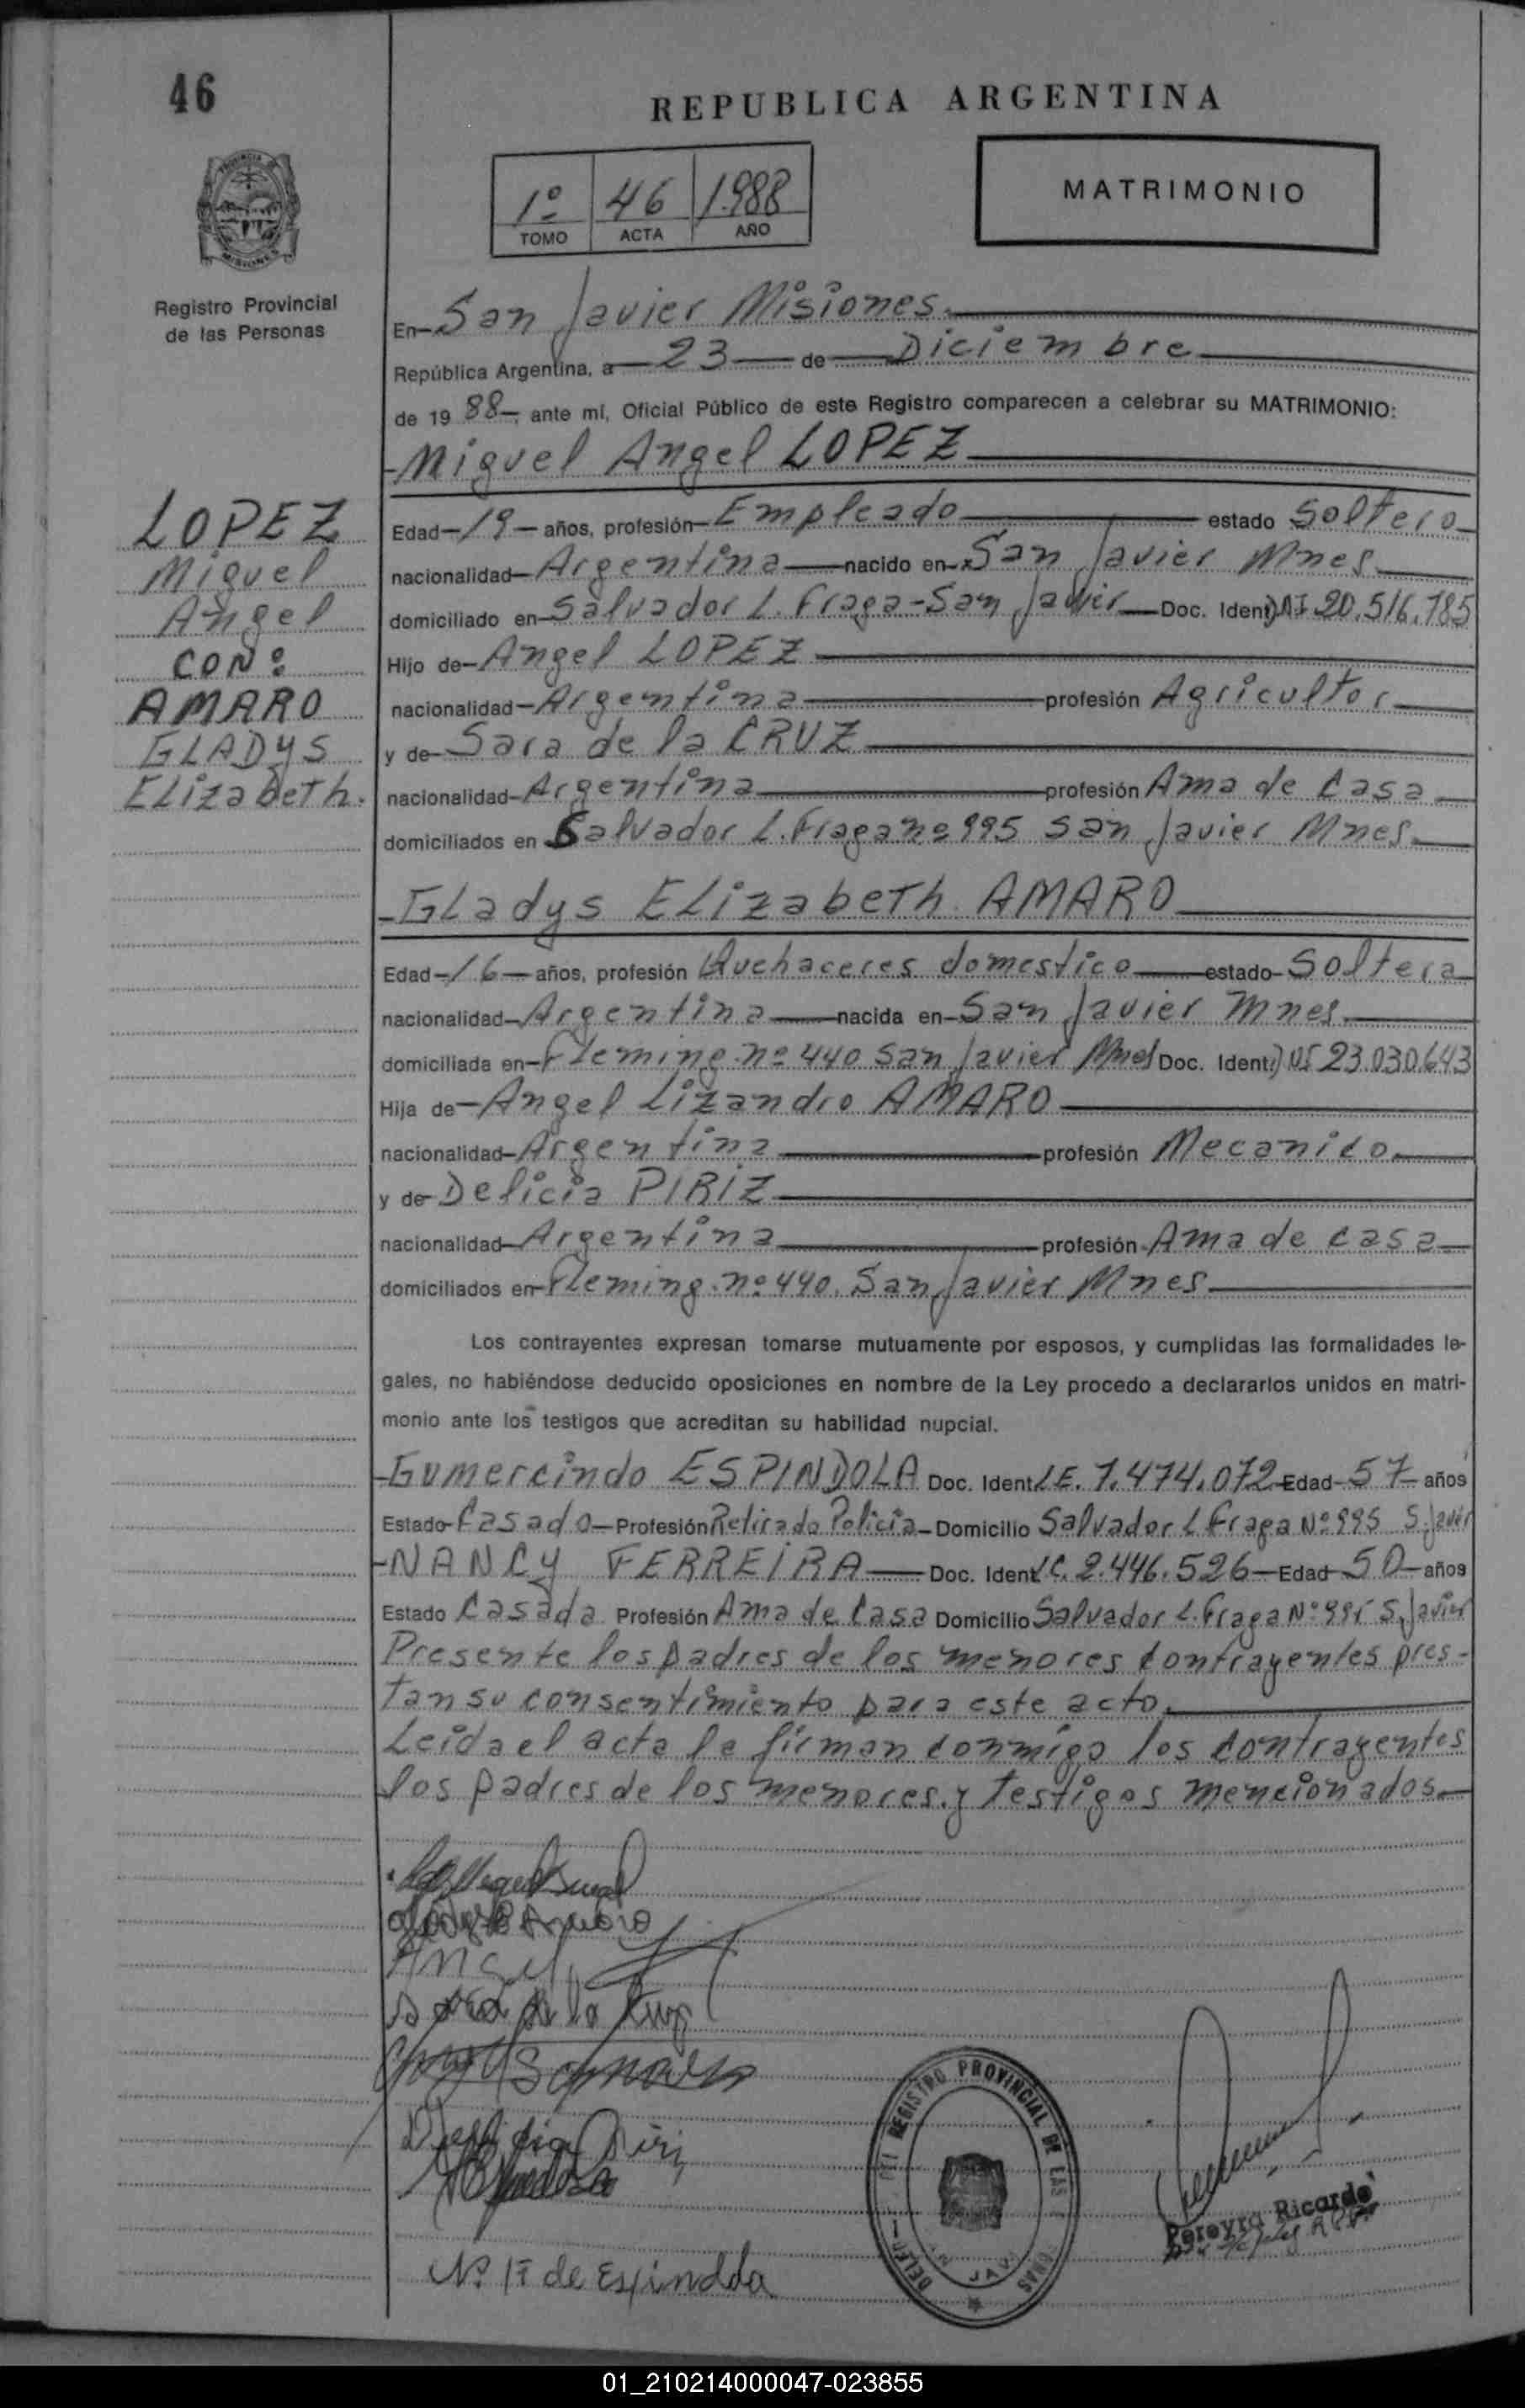 46
REPUBLICA ARGENTINA
PROVINCIA DE
MISIONES
1º 46 1.988
TOMO ACTA AÑO
MATRIMONIO
Registro Provincial
de las Personas
En San Javier Misiones.
República Argentina, a 23 de Diciembre
de 19 88, ante mí, Oficial Público de este Registro comparecen a celebrar su MATRIMONIO:
Miguel Angel LOPEZ
LOPEZ
Miguel
Angel
CON:
AMARO
GLADYS
ELizabeTh.
Edad 19 años, profesión Empleado estado Soltero
nacionalidad Argentina nacido en San Javier Mnes.
domiciliado en Salvador L. Fraga-San Javier Doc. Ident. DNI 20.516.785
Hijo de Angel LOPEZ
nacionalidad Argentina profesión Agricultor
y de Sara de la CRUZ
nacionalidad Argentina profesión Ama de Casa
domiciliados en Salvador L. Fraga nº 995 San Javier Mnes.
GLadys ELizabeTh AMARO
Edad 16 años, profesión Quehaceres domestico estado Soltera
nacionalidad Argentina nacida en San Javier Mnes.
domiciliada en Fleming nº 440 San Javier Mnes Doc. Ident. 23.030.643
Hija de Angel Lizandro AMARO
nacionalidad Argentina profesión Mecanico
y de Delicia PIRIZ
nacionalidad Argentina profesión Ama de casa
domiciliados en Fleming nº 440. San Javier Mnes
Los contrayentes expresan tomarse mutuamente por esposos, y cumplidas las formalidades le-
gales, no habiéndose deducido oposiciones en nombre de la Ley procedo a declararlos unidos en matri-
monio ante los testigos que acreditan su habilidad nupcial.
Gumercindo ESPINDOLA Doc. Ident L.E. 7.474.072 Edad 57 años
Estado Casado Profesión Retirado Policia Domicilio Salvador L Fraga Nº 995 S. Javier
NANCY FERREIRA Doc. Ident L.C. 2.446.526 Edad 50 años
Estado Casada Profesión Ama de Casa Domicilio Salvador L. Fraga Nº 995 S. Javier
Presente los padres de los menores contrayentes pres-
tan su consentimiento para este acto.
Leida el acta la firman conmigo los contrayentes
los padres de los menores y testigos mencionados.
Angel
Sara de la Cruz
Delicia Piriz
Nº F de Espindola
REGISTRO PROVINCIAL DE LAS
Pereyra Ricardo
01_210214000047-023855